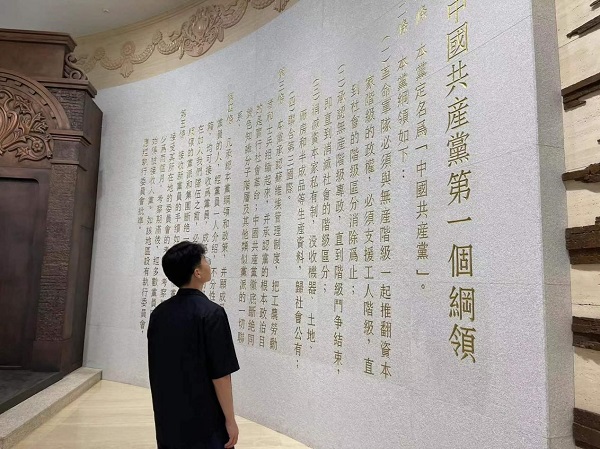 中國共產黨第一個綱領
條 本黨定名爲「中國共產黨」。
條 本黨綱領如下：
(一)革命軍隊必須與無產階級一起推翻資本
家階級的政權，必須支援工人階級，直
到社會的階級區分消除爲止；
(二)承認無產階級專政，直到階級鬥爭結束，
即直到消滅社會的階級區分；
(三)消滅資本家私有制，沒收機器、土地、
廠房和半成品等生產資料，歸社會公有；
(四)聯合第三國際。
第三條 本黨承認蘇維埃管理制度，把工農勞動
者和士兵組織起來，并承認黨的根本政治目
的是實行社會革命；中國共產黨徹底斷絕同
黃色知識分子階層及其他類似黨派的一切聯
第四條 凡承認本黨綱領和政策，并願成
黨員的人，經黨員一人介紹，不分性
均可接收爲黨員，成
在加入我們隊伍之前，必
的黨派和集團斷絕一
第五條 接收新黨員的手續如
接受其所在地的委員會的考察
少爲兩個月。考察期滿後，經多數黨員
得被接收入黨。如該地區設有執行委員會，
應經執行委員會批準。